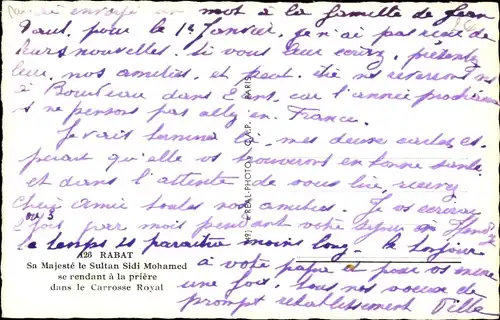 J'ai envoyé un mot à la famille de Jean
Paul, pour le 1r Janvier, je n'ai pas reçu de
leurs nouvelles. Si vous leur écrivez, présentez
leur nos amitiés, et peut être ns reverrons ns
à Bordeaux dans 2 ans, car l'année prochaine
ns ne pensons pas aller en France.
Je vais terminer là, mes deux cartes, et
que vs trouveront en bonne santé
et dans l'attente de vous lire, recevez
chère Amie toutes nos amitiés. Je vs écrirai
2 ou 3
fois par mois pendant votre séjour
le temps vs paraître moins long. le bonjour
à votre papa et pour vs
une fois, tous nos voeux de
prompt rétablissement
126 RABAT
Sa Majesté le Sultan Sidi Mohamed
se rendant à la prière
dans le Carrosse Royal
REAL-PHOTO - C.A.P. - PARIS